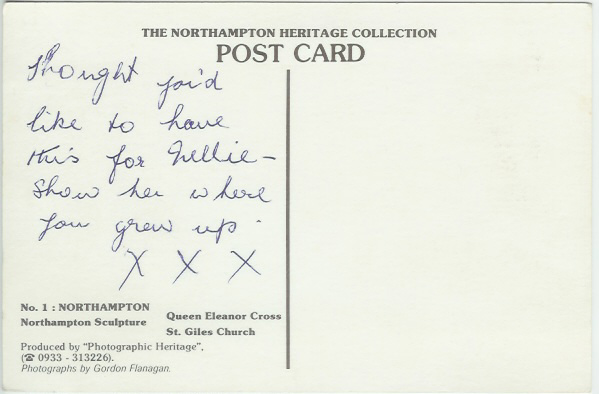 THE NORTHAMPTON HERITAGE COLLECTION
POST CARD
Thought you'd
like to have
this for Nellie –
Show her where
you grew up.
X X X
No. 1 : NORTHAMPTON
Northampton Sculpture
Queen Eleanor Cross
St. Giles Church
Produced by "Photographic Heritage",
(☎ 0933 - 313226).
Photographs by Gordon Flanagan.